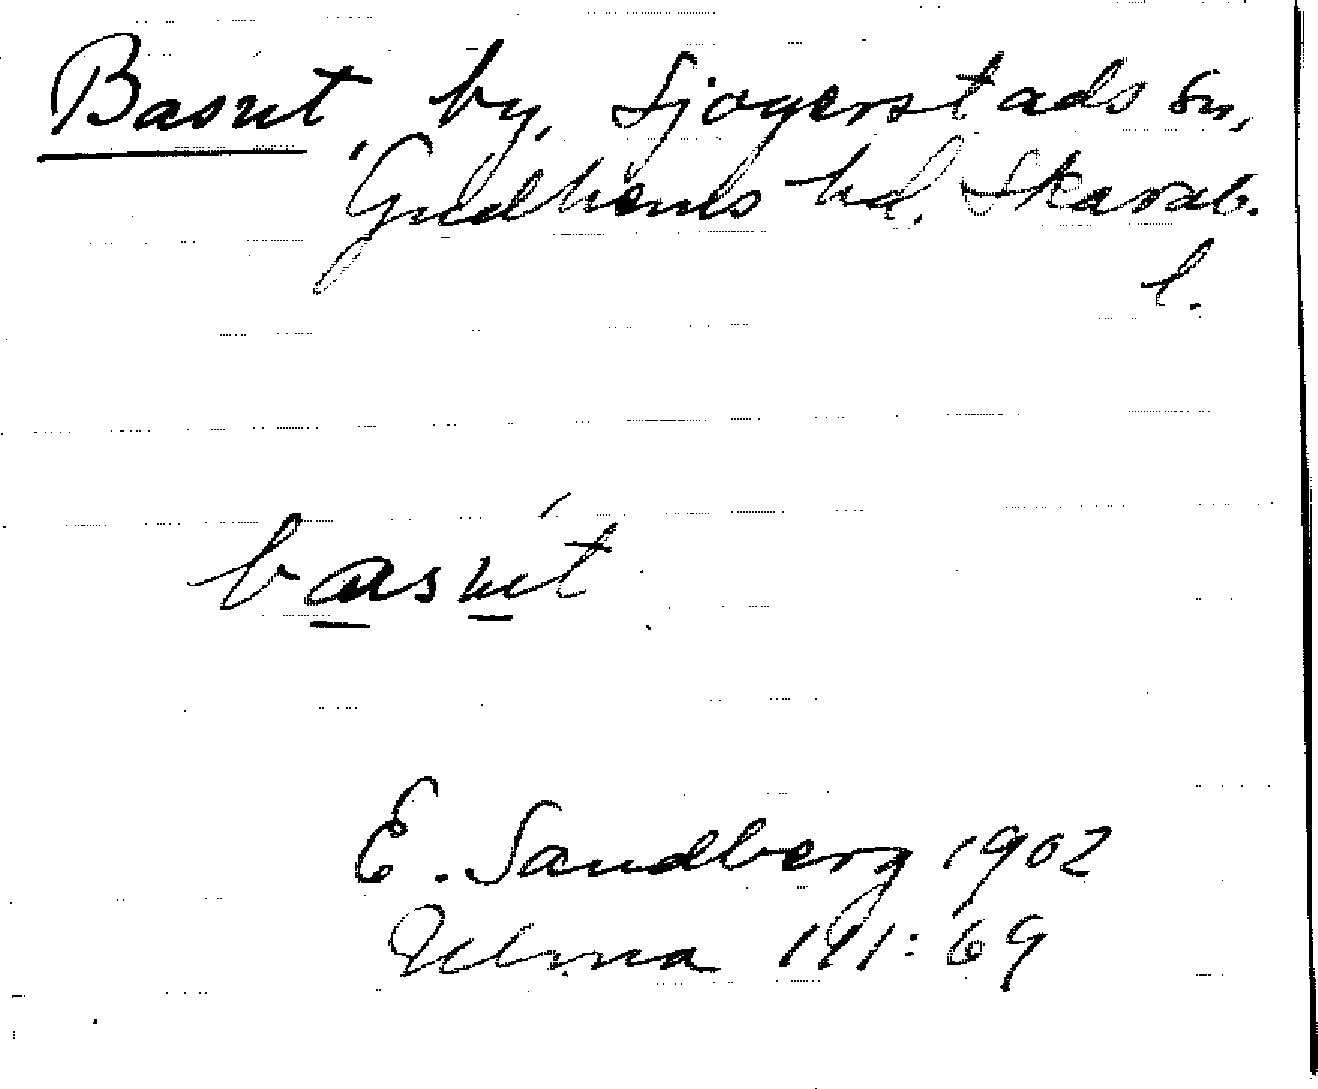 Basut, by, Sjogerstads sn,
Gudhems hd. Skarab.
l.
E. Sandberg 1902
Ulma 111:69